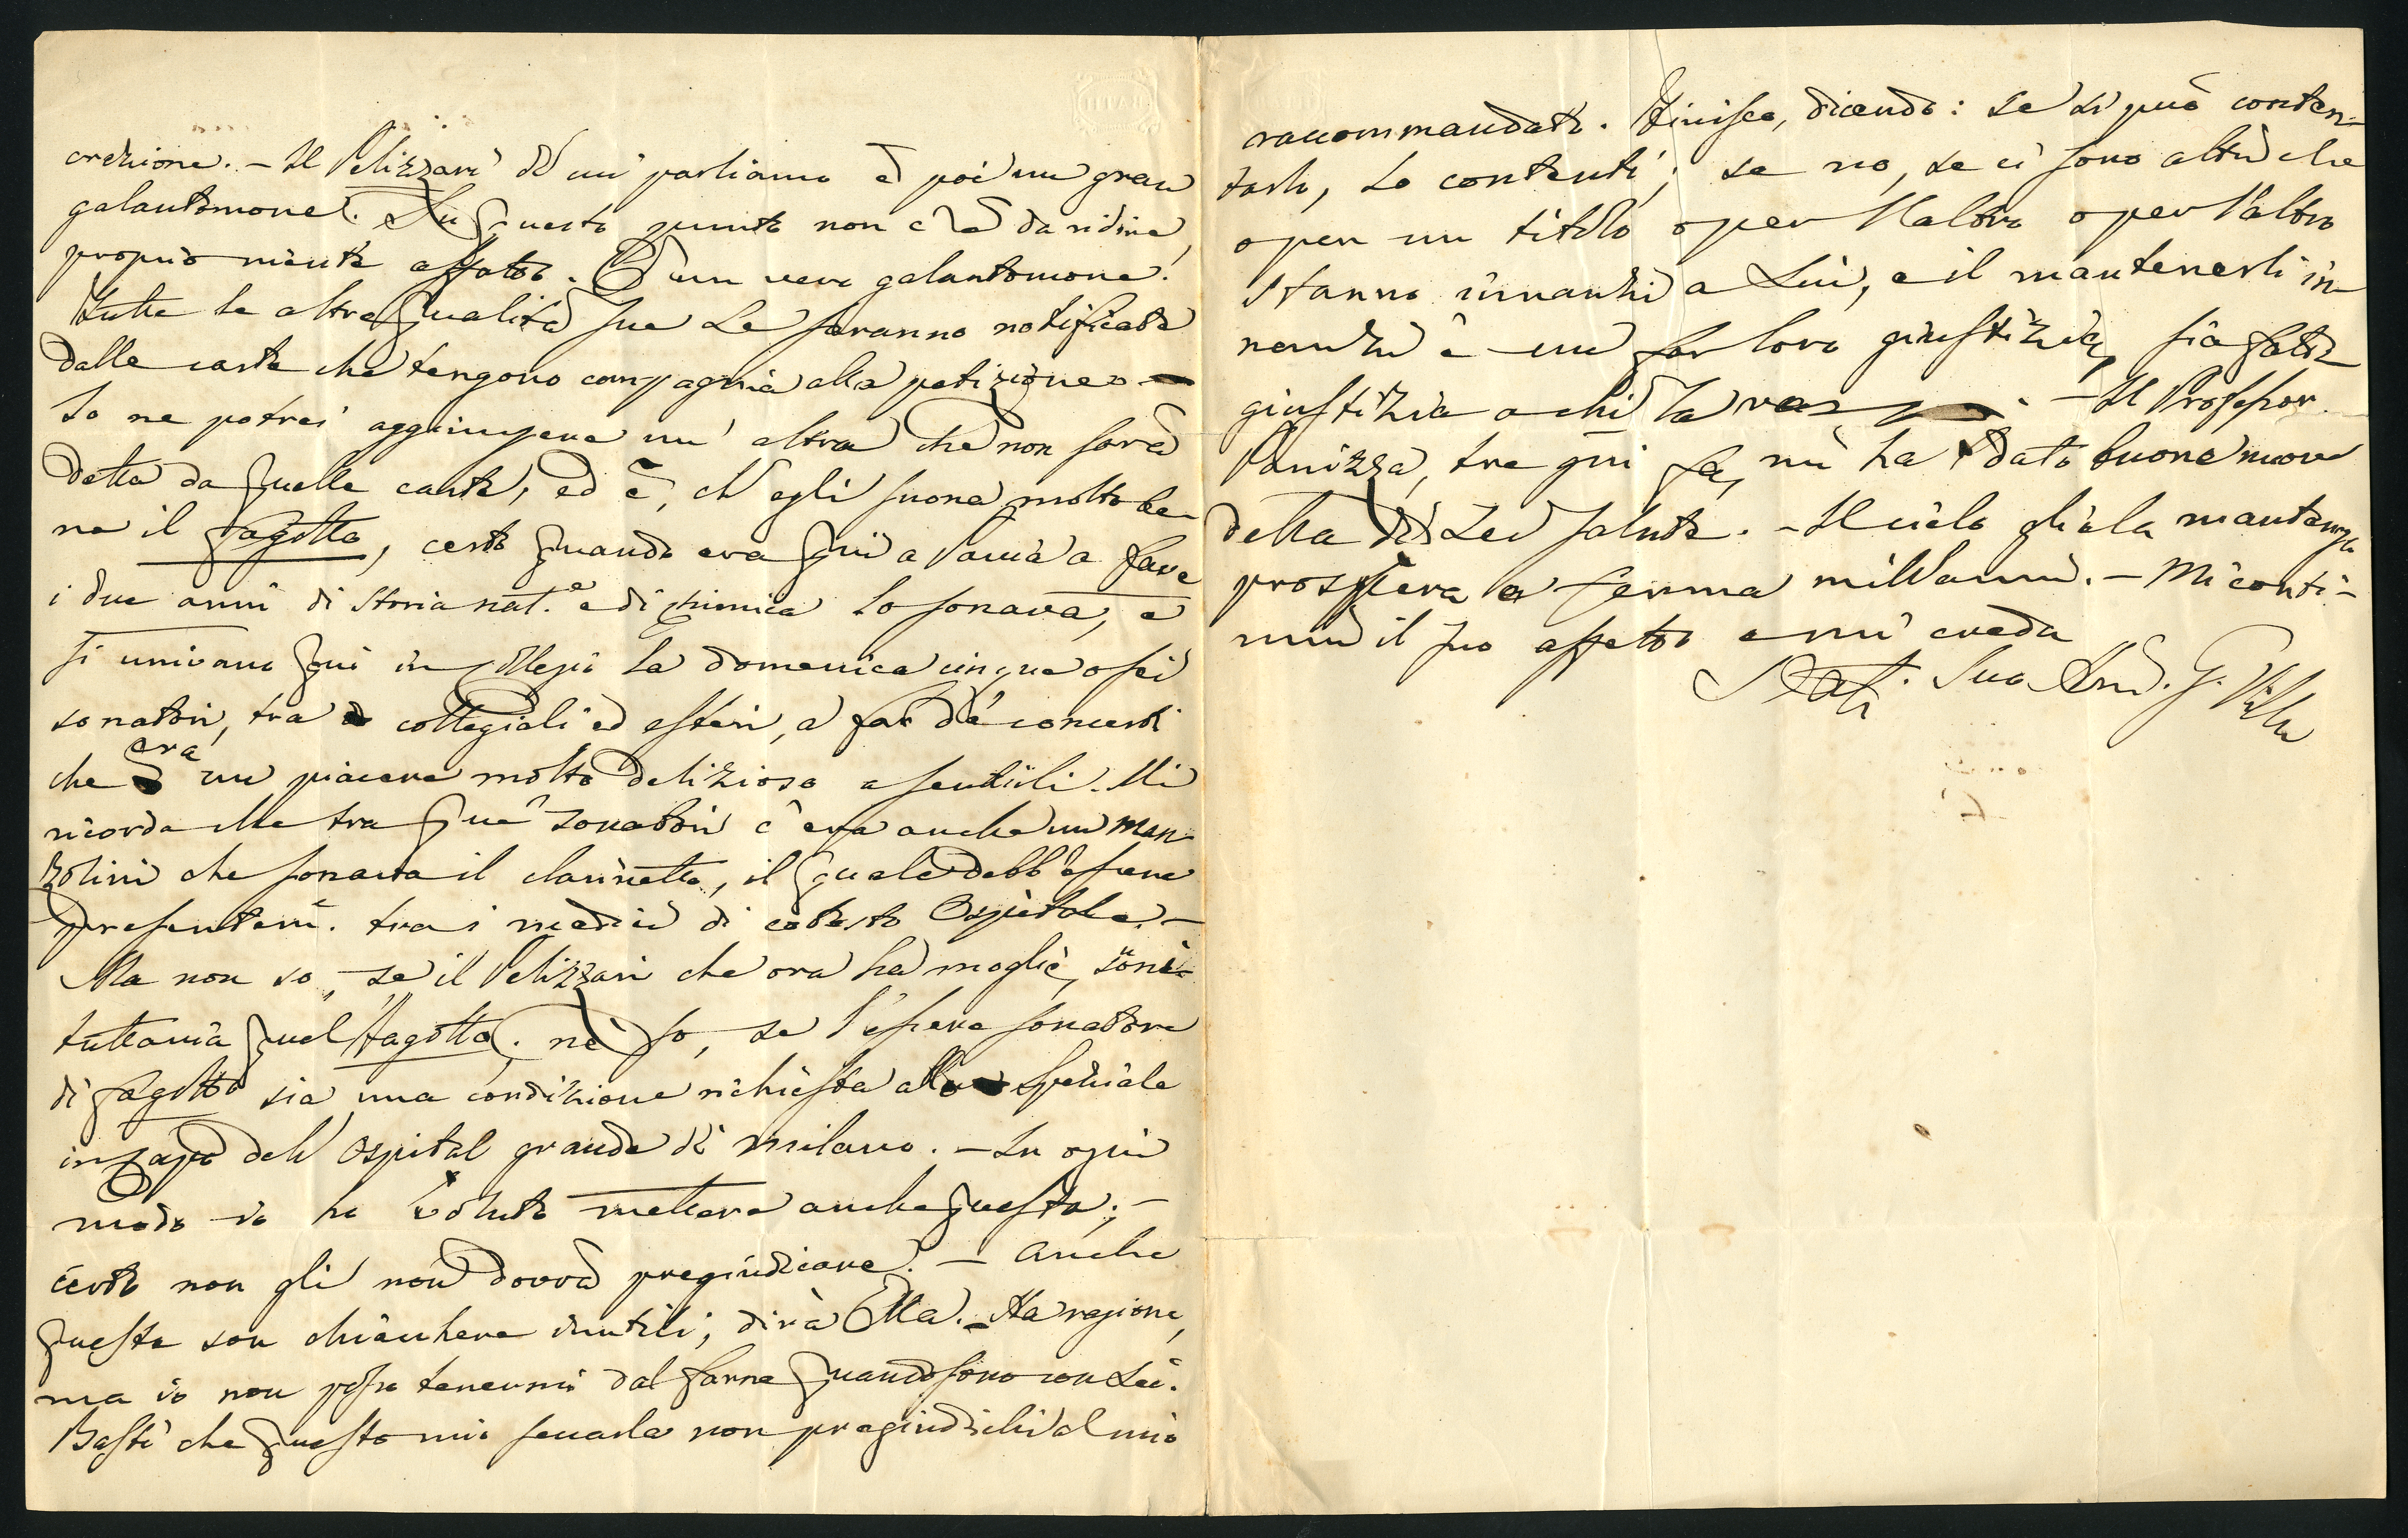 crezione. – Il Pelizzari di cui parliamo è poi un gran
galantomone. Su questo punto non c'è da ridire,
proprio niente affatto. È un vero galantomone!
Tutte le altre qualità sue Le saranno notificate
dalle carte che tengono compagnia alla petizione –
Io ne potrei aggiungere un' altra che non sarà
detta da quelle carte, ed è, ch' egli suona molto be-
ne il fagotto, certo quando era qui a Pavia a fare
i due anni di Storia nat.e e di chimica lo sonava, e
si univano qui in Collegio la domenica cinque o sei
sonatori, tra collegiali ed esteri, a far de' concerti
che era un piacere molto delizioso a sentirli. Mi
ricorda che tra que' sonatori c'era anche un Man-
zolini che sonava il clarinetto, il quale debb' essere
presentem. tra i medici di cotesto Ospitale. –
Ma non so, se il Pelizzari che ora ha moglie, soni
tuttavia quel fagotto. nè so, se l'essere sonatore
di fagotto sia una condizione richiesta allo speziale
in capo dell' Ospital grande di Milano. – In ogni
modo io ho voluto mettere anche questa; –
certo non gli non dovrà pregiudicare. – Anche
queste son chiacchere inutili, dirà Ella. – Ha ragione,
ma io non posso tenermi dal farne quando sono con Lei.
Basti che questo mio non pregiudichi al mio
raccommandato. Finisco, dicendo: se si può conten-
tarlo, lo contenti; se no, se ci sono altri che
o per un titolo o per l'altro o per l'altro
stanno innanzi a Lui, e il mantenerli in-
nanzi è un far loro giustizia, sia fatta
giustizia a chi la – Il Professor
Panizza, tre gni fa, mi ha dato buone nuove
della di Lei salute. – Il cielo gliela mantenga
prospera e ferma mill'anni. – Mi conti-
nui il suo affetto e mi creda
Suo